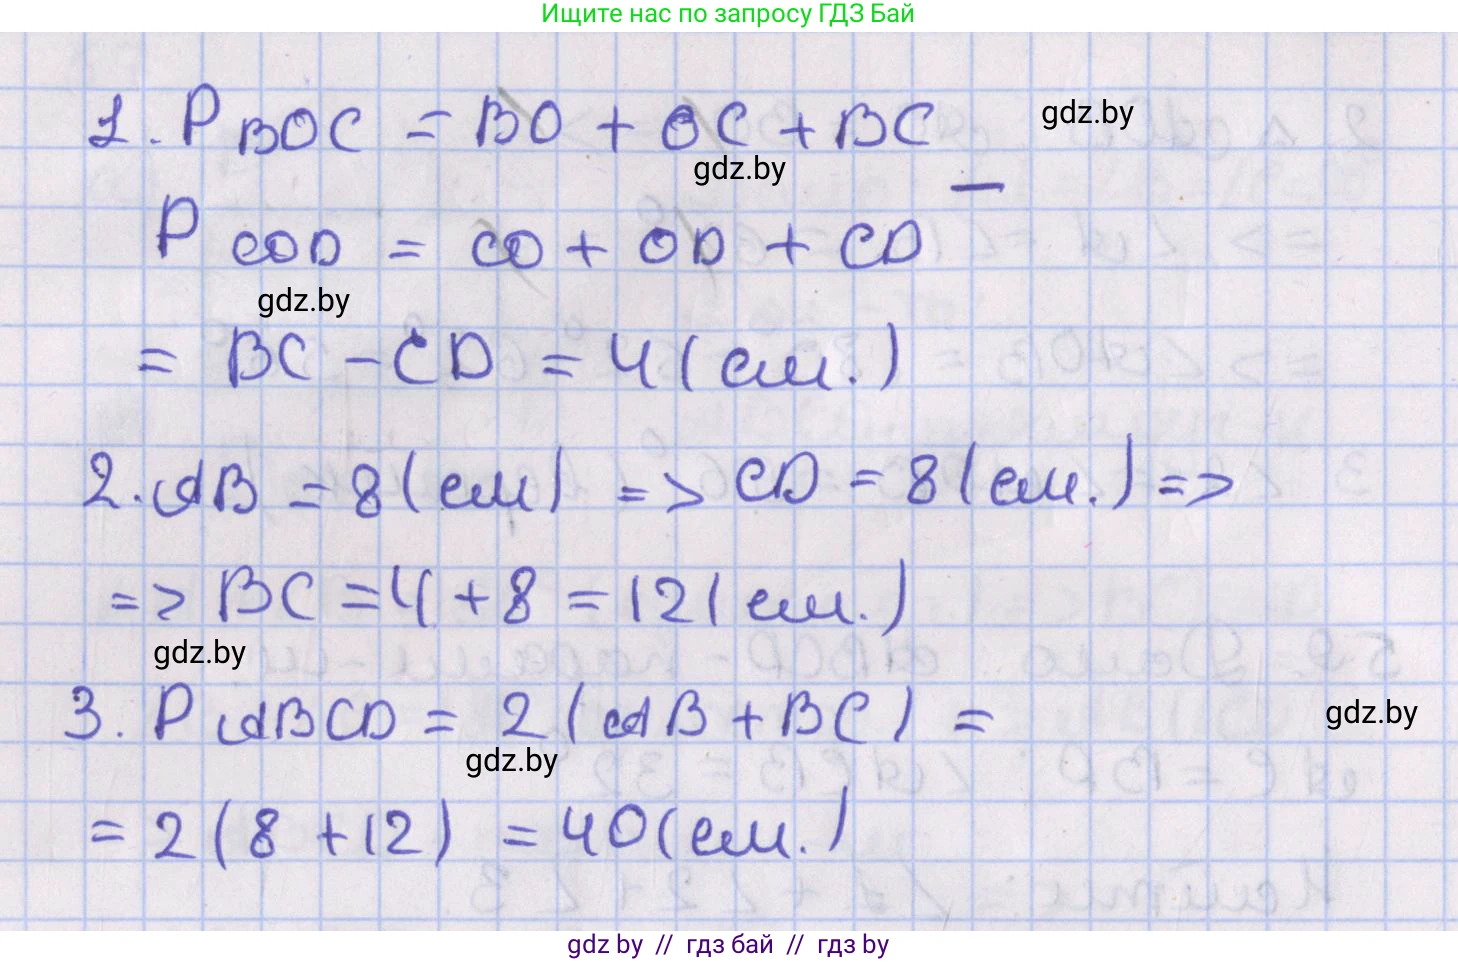 Ищите нас по запросу ГДЗ Бай
1. P BOC = BO + OC + BC −
gdz.by
gdz.by
P COD = CO + OD + CD
gdz.by
= BC − CD = 4 (см.)
2. AB = 8 (см) => CD = 8 (см.) =>
=> BC = 4 + 8 = 12 (см.)
gdz.by
3. P ABCD = 2 (AB + BC) =
gdz.by
gdz.by
= 2 (8 + 12) = 40 (см.)
gdz by // гдз бай // гдз by